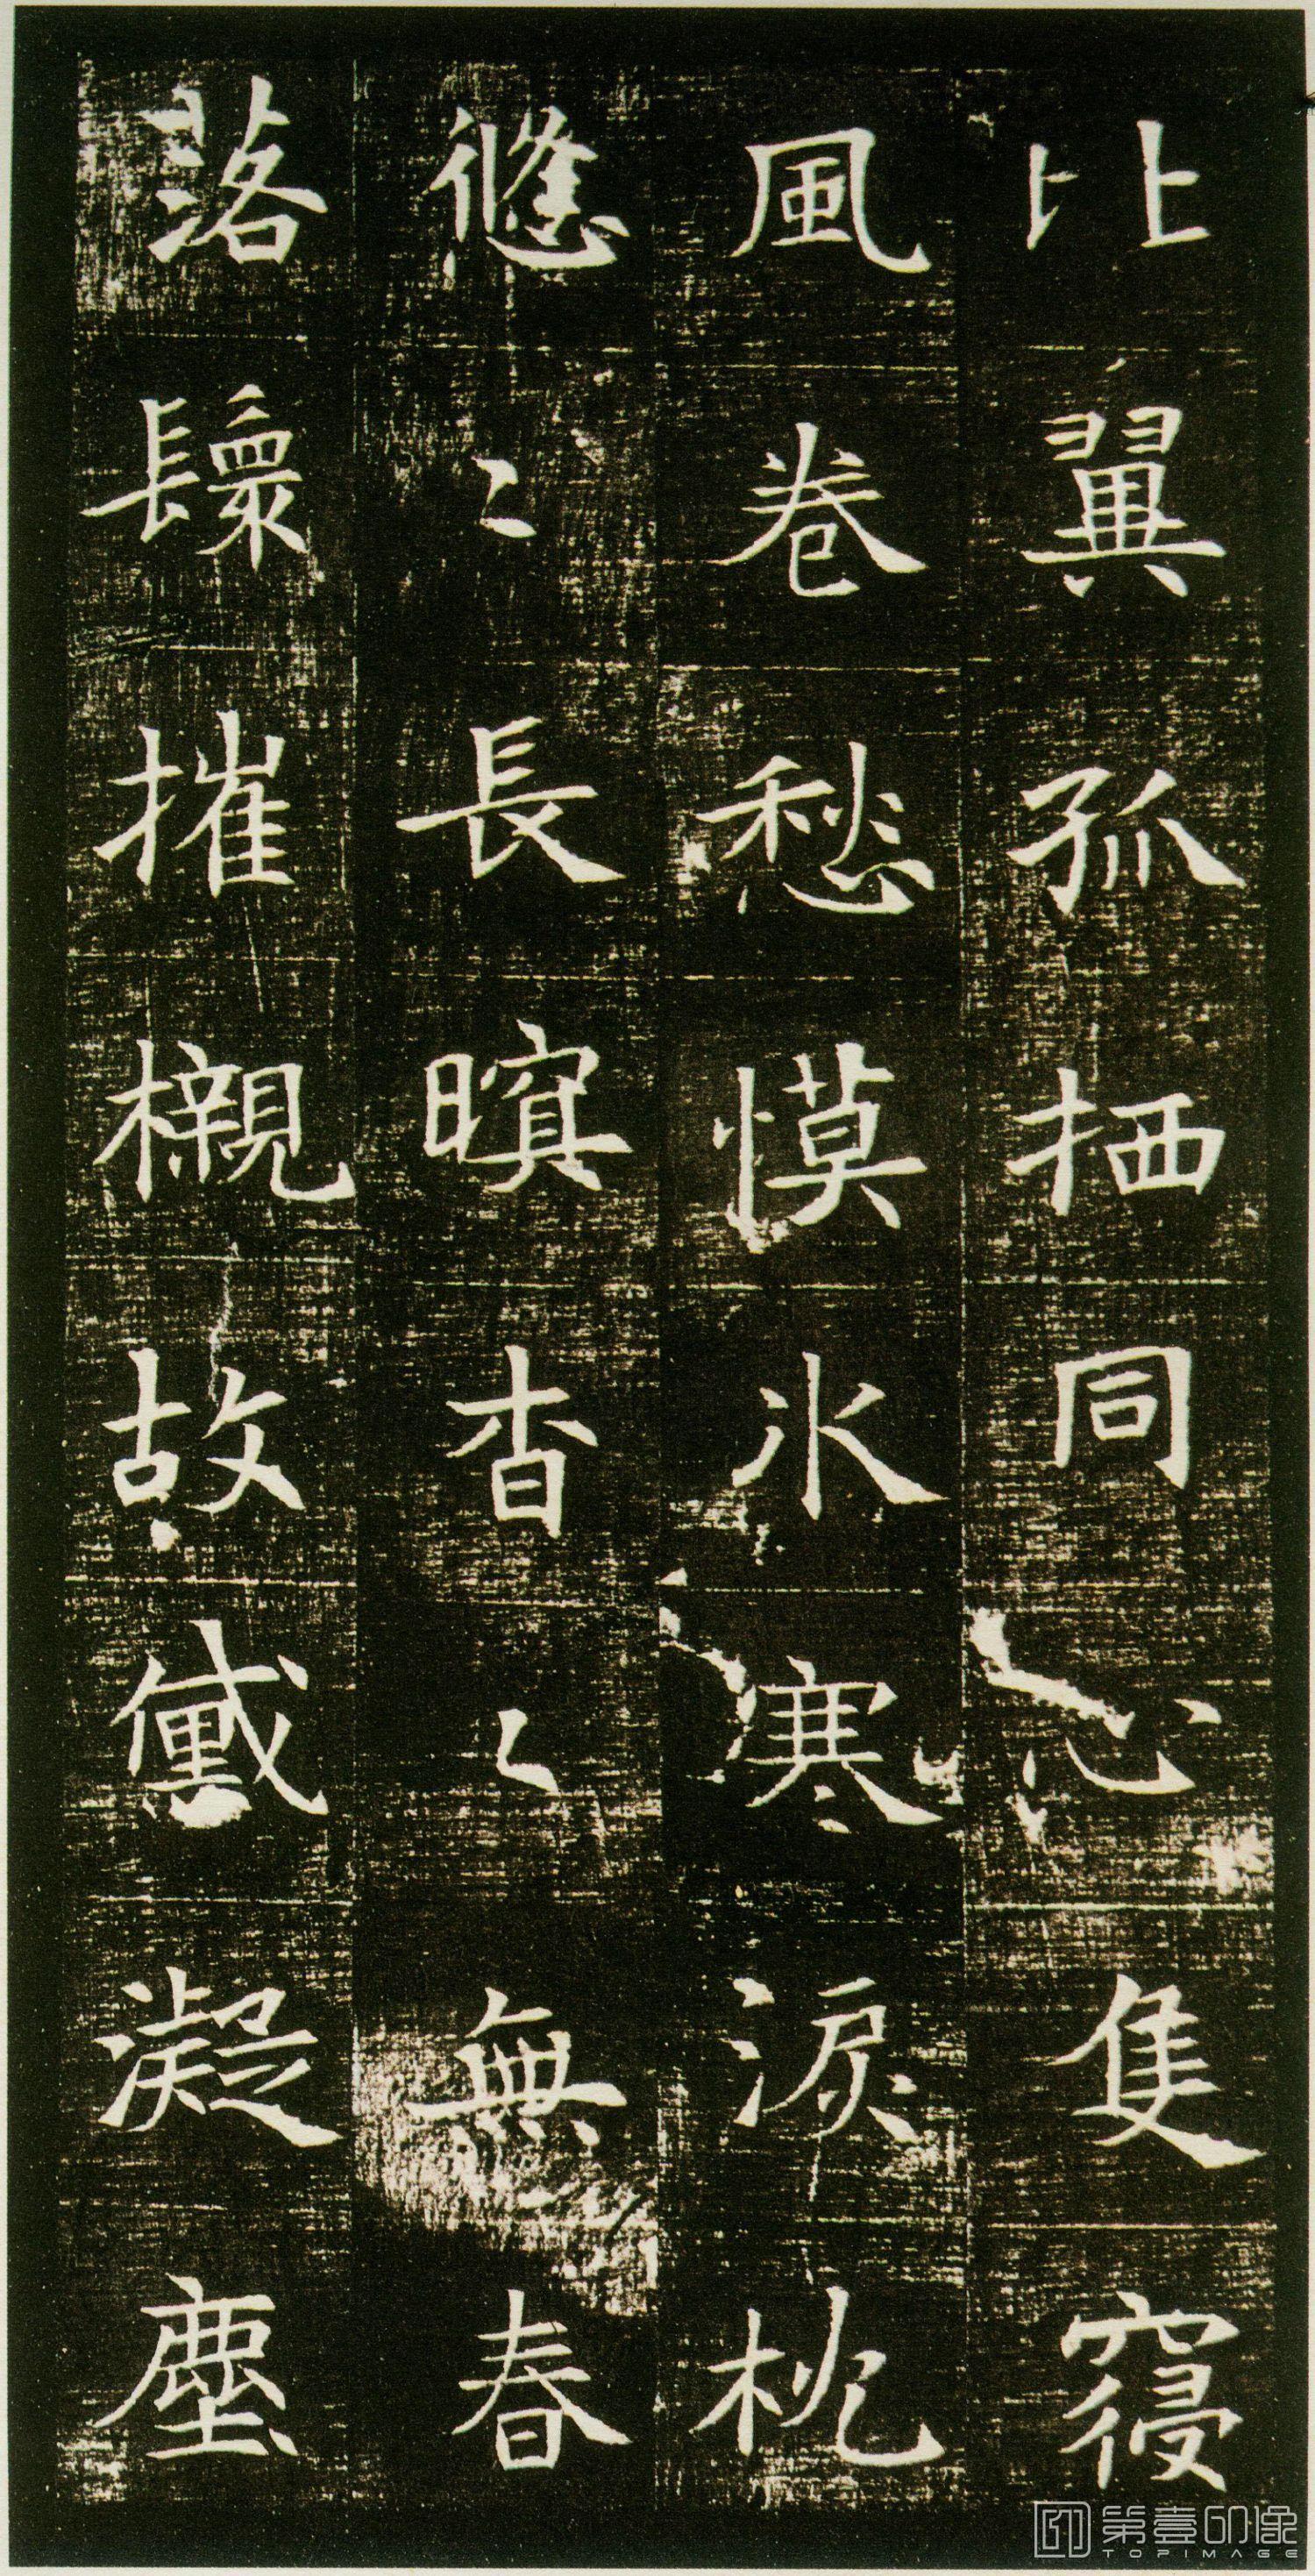 比翼孤栖同心隻寢
風卷愁慔冰寒淚枕
悠〻長暝杳〻無春
落鬟摧櫬故黛凝塵
第壹印像
TOPIMAGE